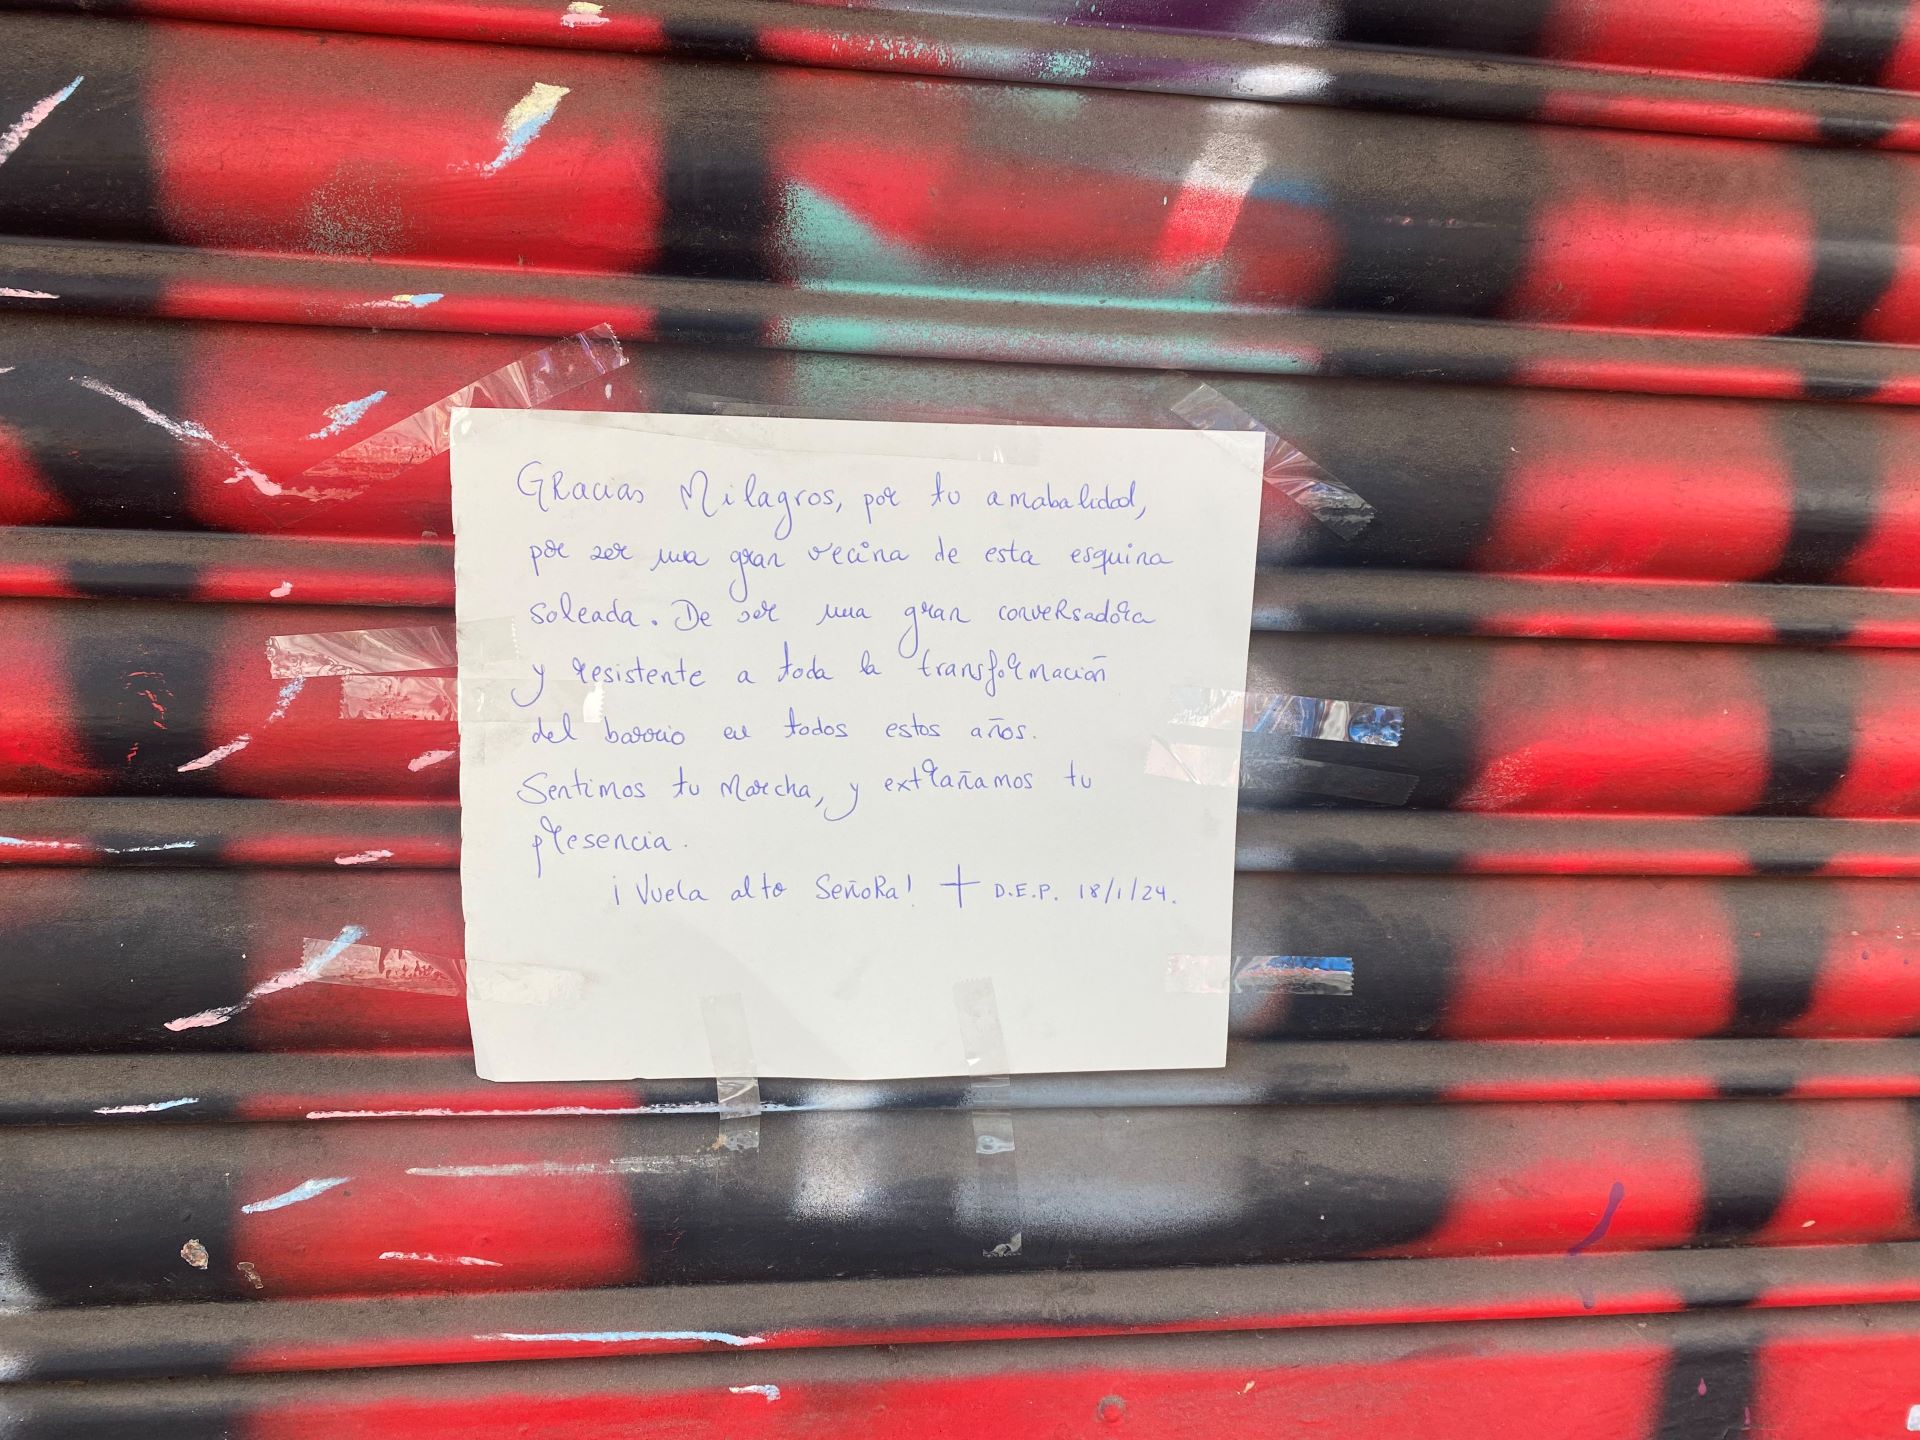 Gracias Milagros, por tu amabalidad,
por ser una gran vecina de esta esquina
soleada. De ser una gran conversadora
y resistente a toda la transformación
del barrio en todos estos años.
Sentimos tu marcha, y extrañamos tu
presencia.
¡Vuela alto Señora! + D.E.P. 18/1/24.